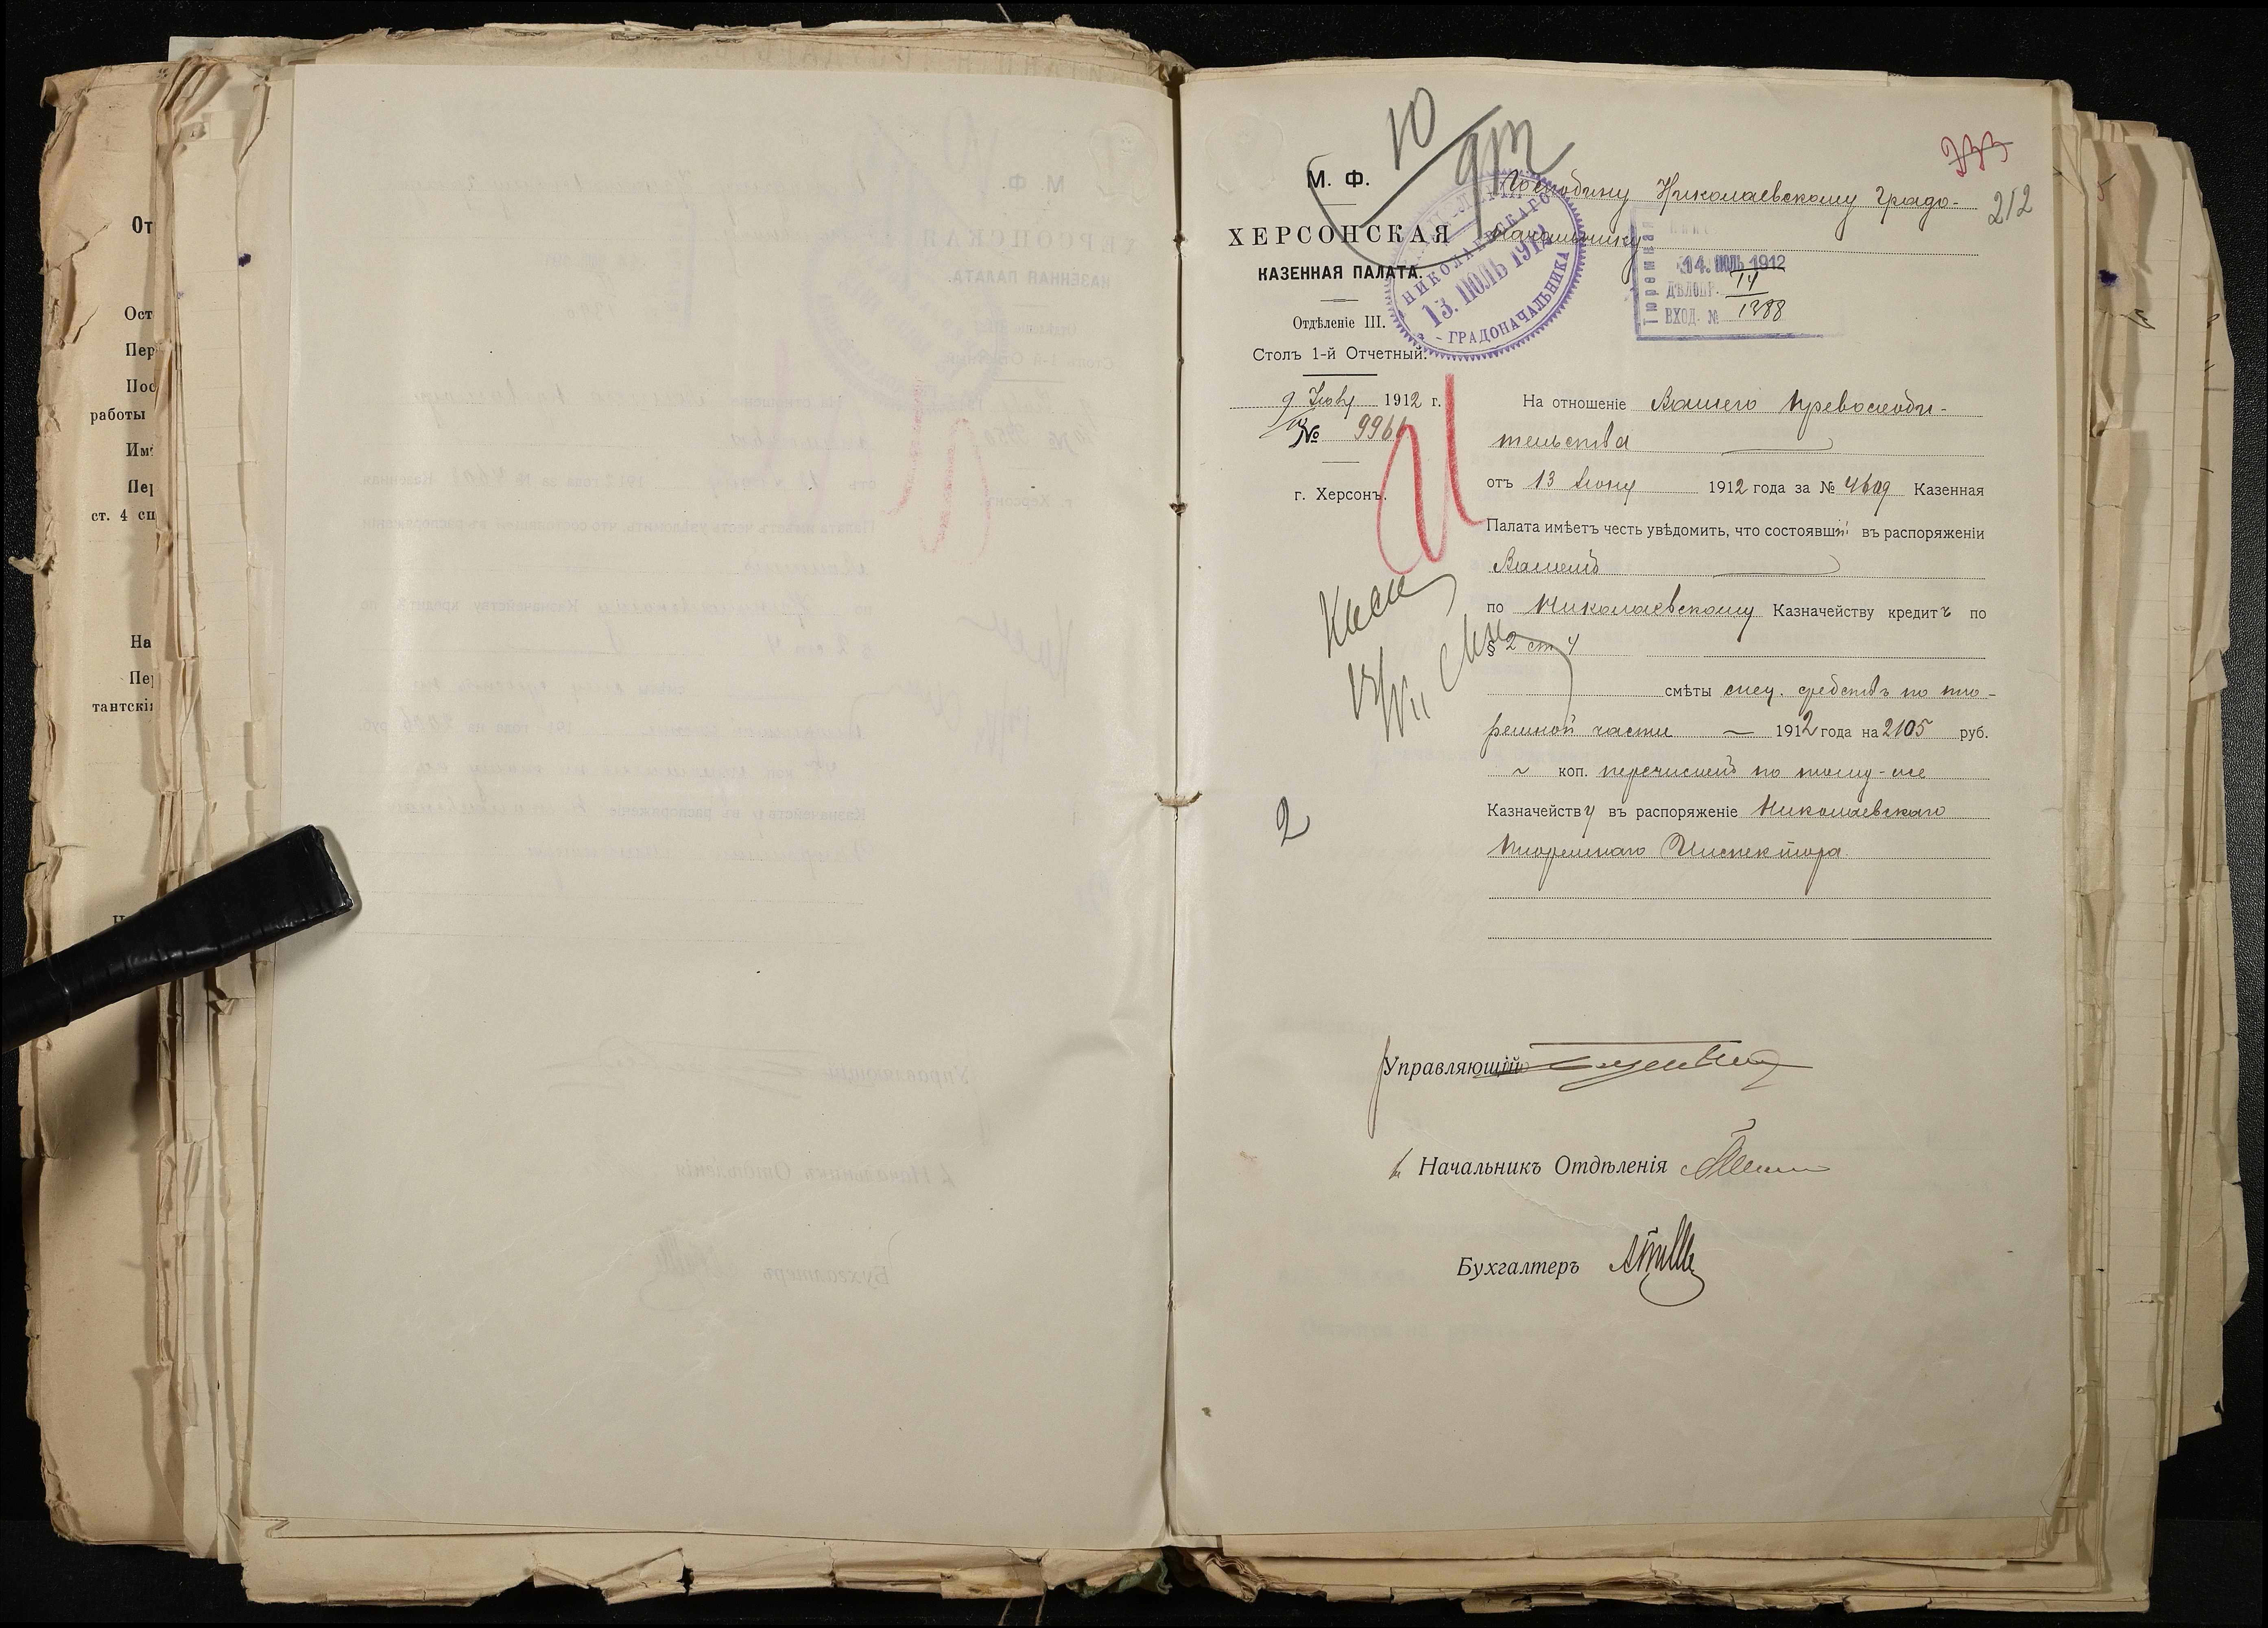 От
Ост
Пер
Пос
работы
Им
Пер
ст. 4 сп
На
Пер
тантскі
10
912
333
212
М. Ф.
ХЕРСОНСКАЯ
КАЗЕННАЯ ПАЛАТА.
Отдѣленіе III.
Столъ 1-й Отчетный.
9 Іюля 1912 г.
№ 9966
г. Херсонъ.
Господину Николаевскому Градо-
начальнику
НИКОЛАЕВСКАГО
13. ІЮЛЬ 1912
ГРАДОНАЧАЛЬНИКА
Тюремная
14. ІЮЛЬ 1912
ДѢЛОПР. 14
ВХОД. № 1388
На отношеніе Вашего Превосходи-
тельства
отъ 13 Іюня 1912 года за № 4609 Казенная
Палата имѣетъ честь увѣдомить, что состоявшій въ распоряженіи
Вашемъ
по Николаевскому Казначейству кредитъ по
§ 2 ст 4
смѣты спец. средствъ по тю-
ремной части 1912 года на 2105 руб.
~ коп. перечисленъ по тому-же
Казначейству въ распоряженіе Николаевскаго
Тюремнаго Инспектора.
2
Управляющій
Начальникъ Отдѣленія
Бухгалтеръ